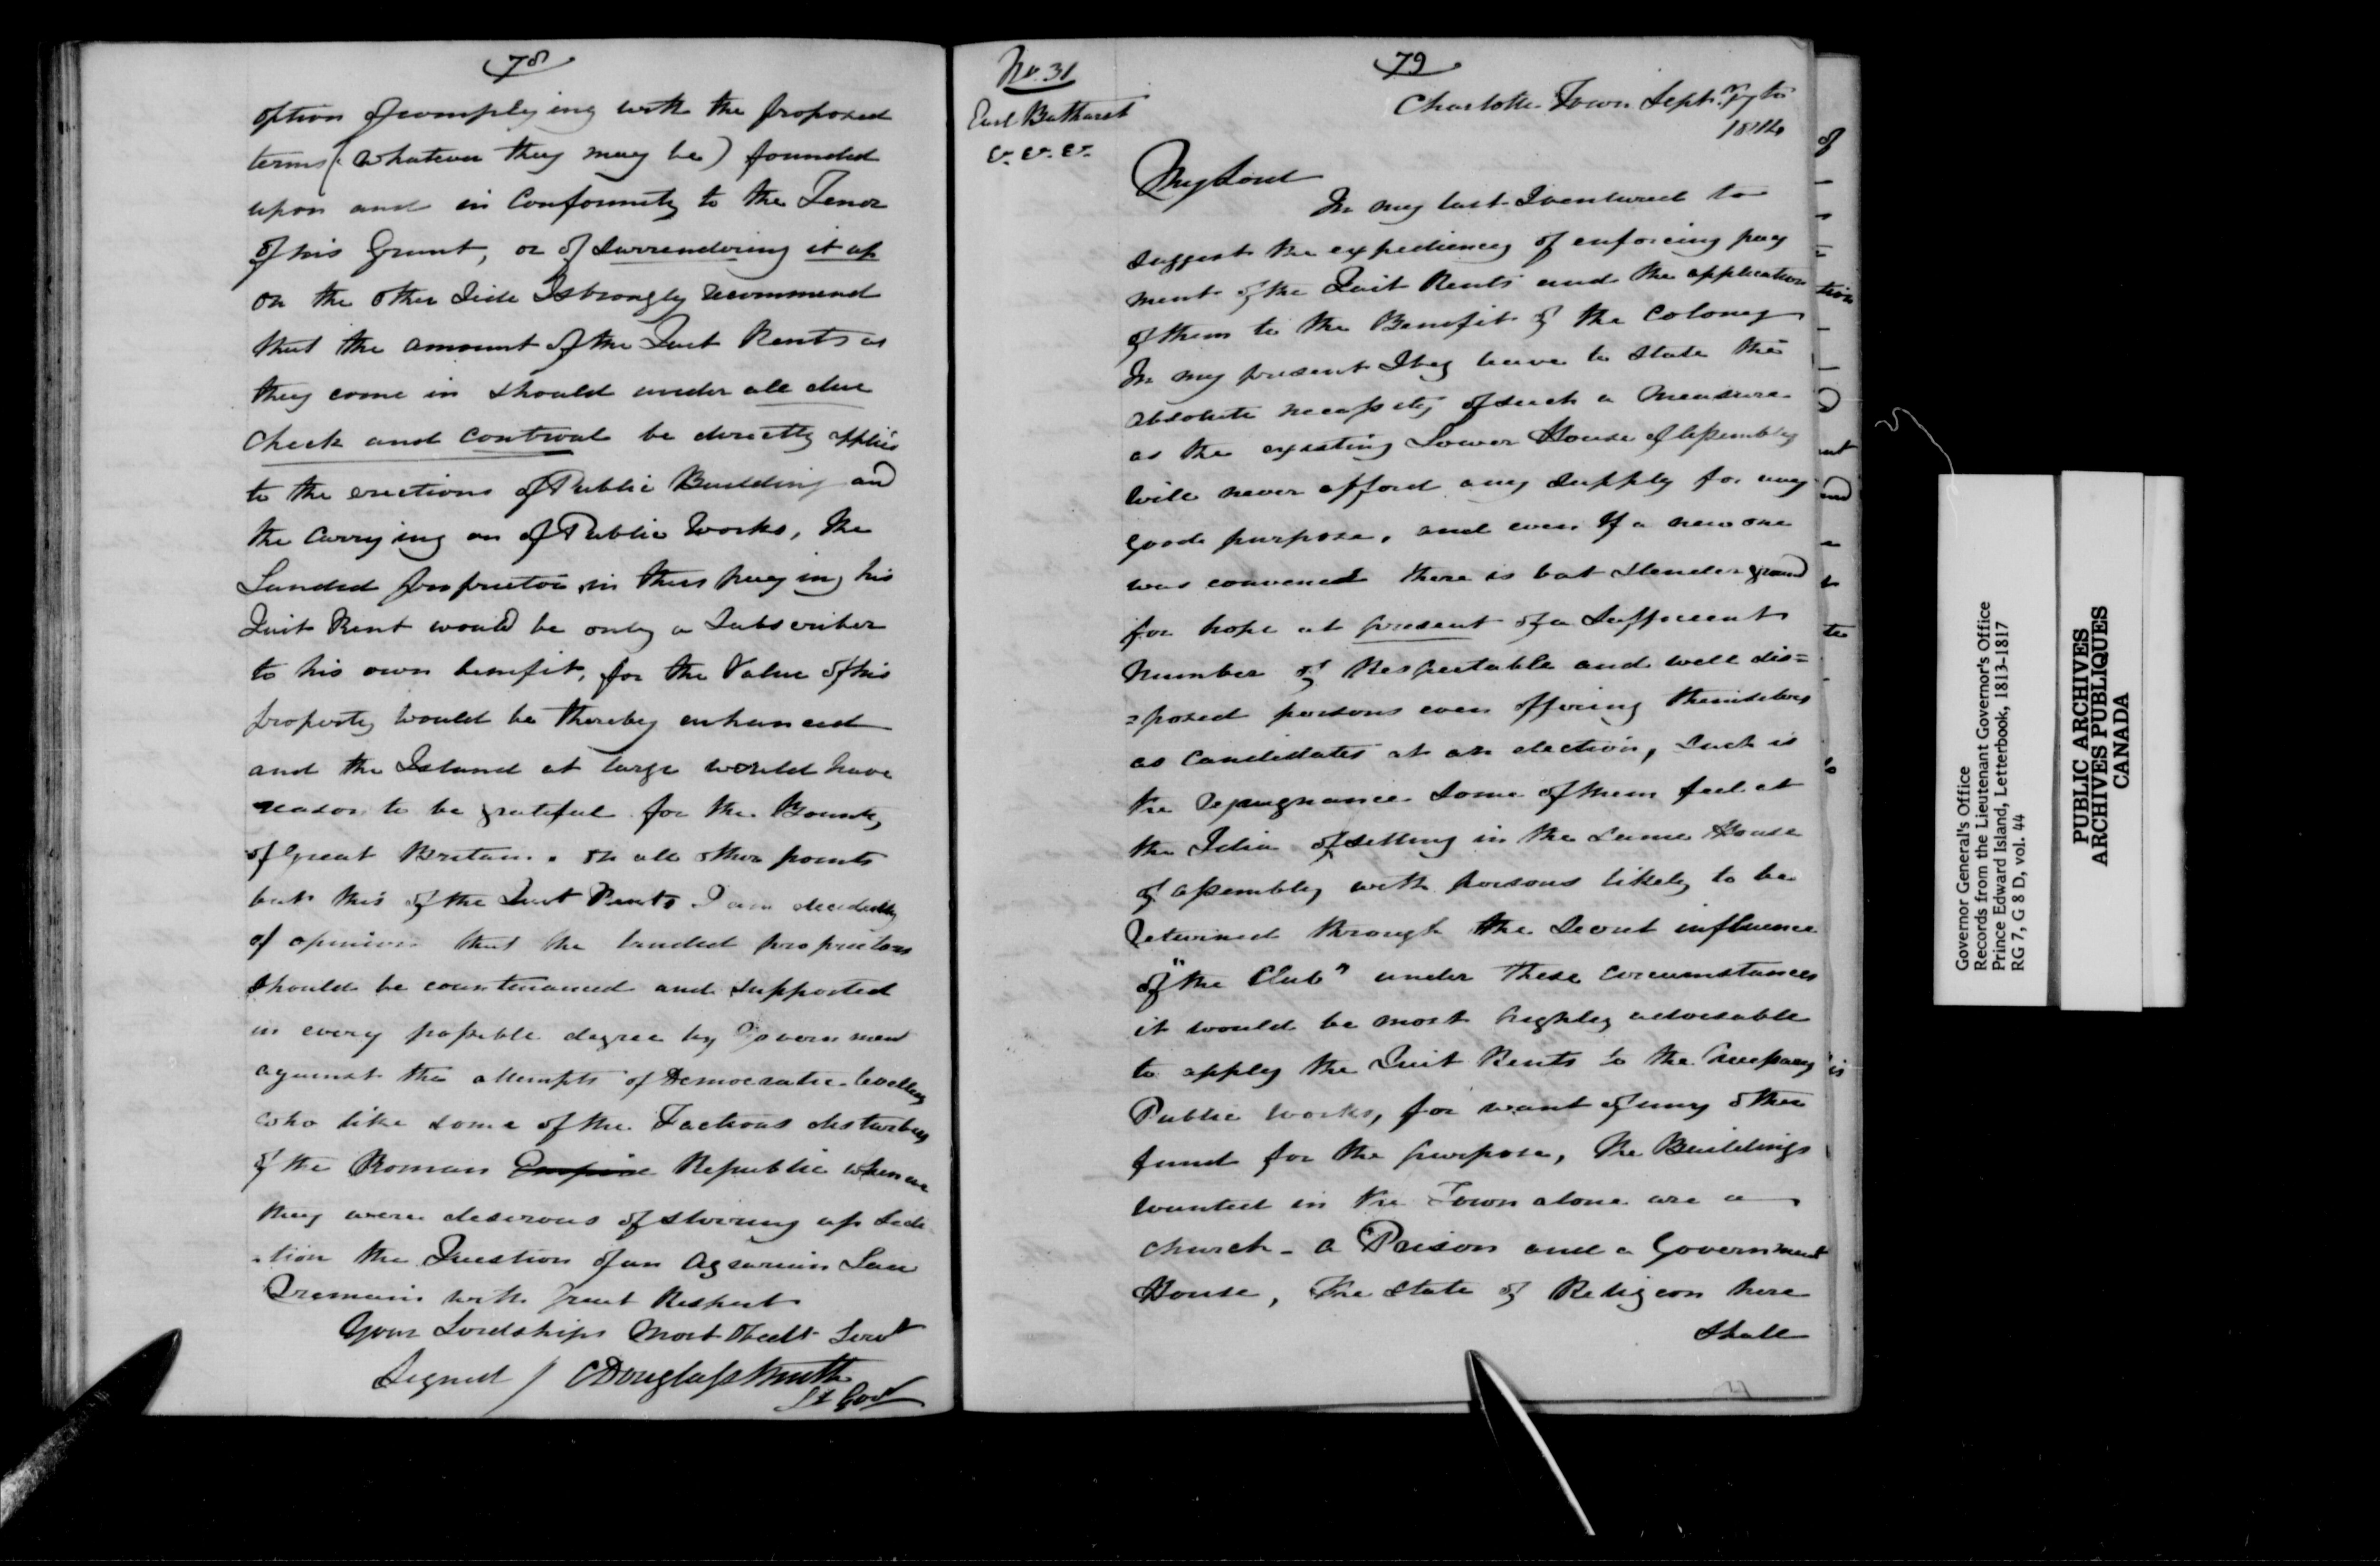 78
option of complying with the proposed
terms (whatever they may be) founded
upon and in Conformity to the Tenor
of his Grant, or of Surrendering it up
on the other Side I strongly recommend
that the amount of the Quit Rents as
they come in should under all due
Check and Controul be directly applied
to the erections of Public Building and
the Carrying on of Public Works, the
Landed proprietor in thus paying his
Quit Rent would be only a Subscriber
to his own benefit, for the Value of his
property would be thereby enhanced
and the Island at large would have
reason to be grateful for the Bounty
of Great Britain. on all other points
but this of the Quit Rents I am decidedly
of opinion that the landed proprietors
should be countenanced and supported
in every possible degree by Government
against the attempts of Democratic levellers
who like some of the Factious disturbers
of the Roman Empire Republic when
they were desirous of stirring up Sedi
-tion the Question of an Agrarian Law
I remain with great Respect
Your Lordships Most Obedt Servt
Signed / C Douglass Smith
Lt Govr
No. 31
79
Earl Bathurst
&. &. &.
Charlotte Town Septr.
1814
My Lord
In my last I ventured to
suggest the expediency of enforcing pay
ment of the Quit Rents and the application
of them to the Benefit of the Colony
In my present I beg leave to state the
absolute necessity of such a Measure
as the existing Lower House of Assembly
will never afford any supply for any
good purpose, and even If a new one
was convened there is but slender ground
for hope at present of a Sufficient
Number of Respectable and well dis=
=posed persons even offering themselves
as Candidates at an election, Such is
the repugnance some of them feel at
the Idea of setting in the same House
of Assembly with persons likely to be
returned through the Secret influence
of "the Club" under these circumstances
it would be most highly adviseable
to apply the Quit Rents to the
Public works, for want of any other
fund for the purpose, the Buildings
wanted in the Town alone are a
Church - a Prison and a Government
House, The state of Religeon here
Shall
Governor General's Office
Records from the Lieutenant Governor's Office
Prince Edward Island, Letterbook, 1813-1817
RG 7, G 8 D, vol. 44
PUBLIC ARCHIVES
ARCHIVES PUBLIQUES
CANADA